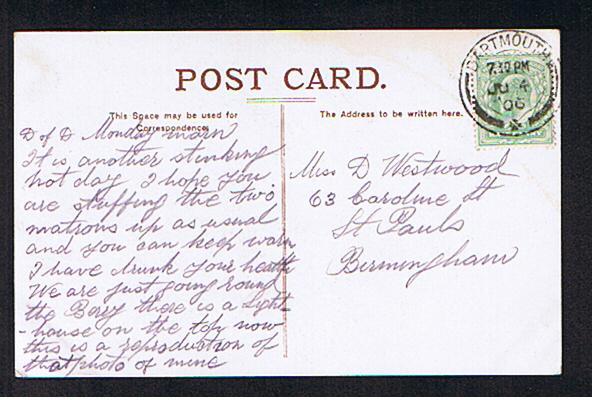 DARTMOUTH
7.30 PM
JU 4
06
POST CARD.
This Space may be used for
Correspondence.
The Address to be written here.
D of D Monday morn
It is another stinking
hot day. I hope you
are stuffing the two
matrons up as usual
and you can keep warm
I have drunk your health
We are just going round
the Berry there is a Light
-house on the top now
this is a reproduction of
that photo of mine
Miss D Westwood
63 Caroline St
St Pauls
Birmingham